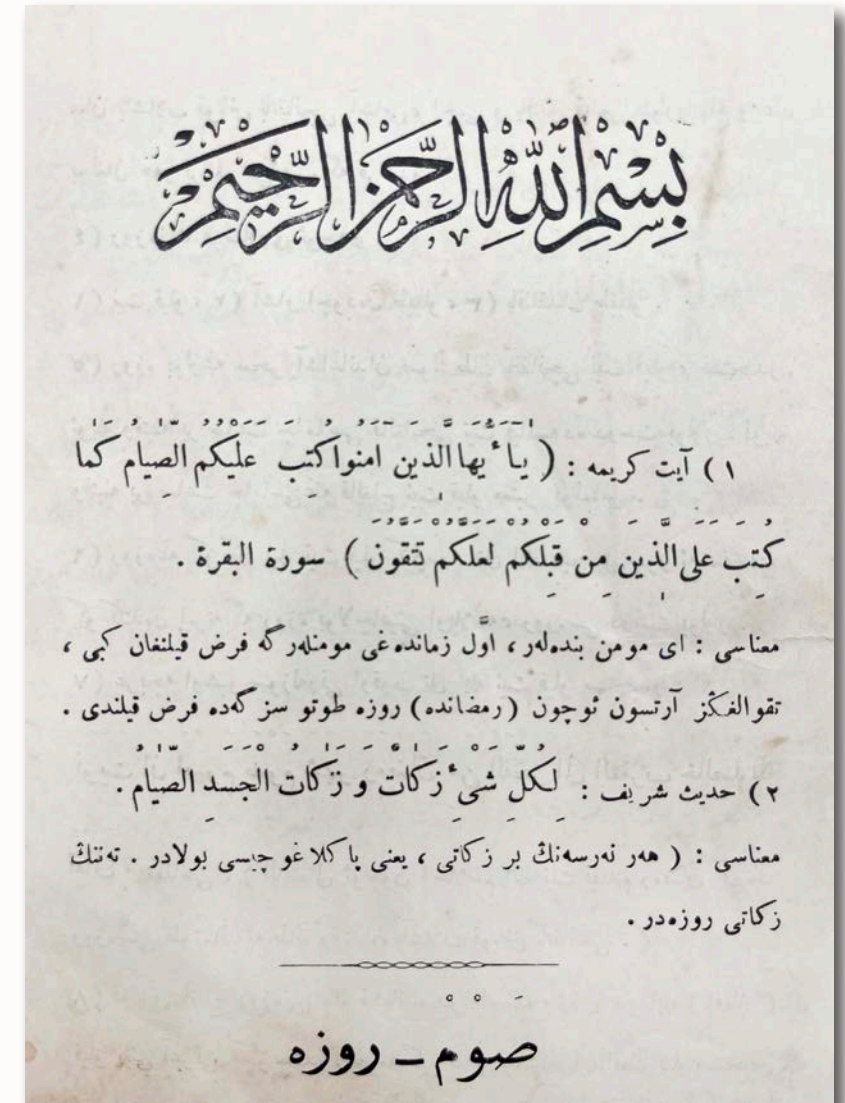 بِسْمِ اللَّهِ الرَّحْمَنِ الرَّحِيمِ
١) آيت كريمه : ( يَآٰ أَيُّهَا الَّذِينَ اٰمَنُوا كُتِبَ عَلَيْكُمُ الصِّيَامُ كَمَا
كُتِبَ عَلَى الَّذِينَ مِنْ قَبْلِكُمْ لَعَلَّكُمْ تَتَّقُونَ ) سورة البقرة .
معناسى : اى مومن بنده‌لەر ، اوّل زمانده‌غى مومنلەر گه فرض قيلنغان كبى ،
تقوالغڭز آرتسون ئوچون (رمضانده) روزه طوتو سز گەده فرض قيلندى .
٢) حديث شريف : لِكُلِّ شَىْءٍ زَكَاتٌ وَ زَكَاتُ الْجَسَدِ الصِّيَامُ .
معناسى : ( هەر نەرسەنڭ بر زكاتى ، يعنى پاكلاغوچيسى بولادر . تەننڭ
زكاتى روزه‌در .
صَوْمْ ـ رُوزه